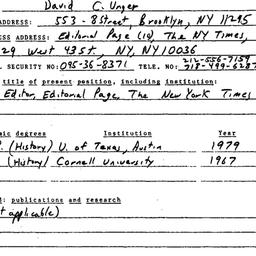 David C. Unger
ADDRESS: 553-8 Street, Brooklyn, NY 11215
ESS ADDRESS: Editorial Page (10), The NY Times,
29 West 43 St., NY, NY 10036
L SECURITY NO: 095-36-8371 TELE. NO: 212-556-7159
718-499-6287
title of present position, including institution:
Editor, Editorial Page, The New York Times
ic degrees Institution Year
. (History) U. of Texas, Austin 1979
(History) Cornell University 1967
d: publications and research
t applicable)